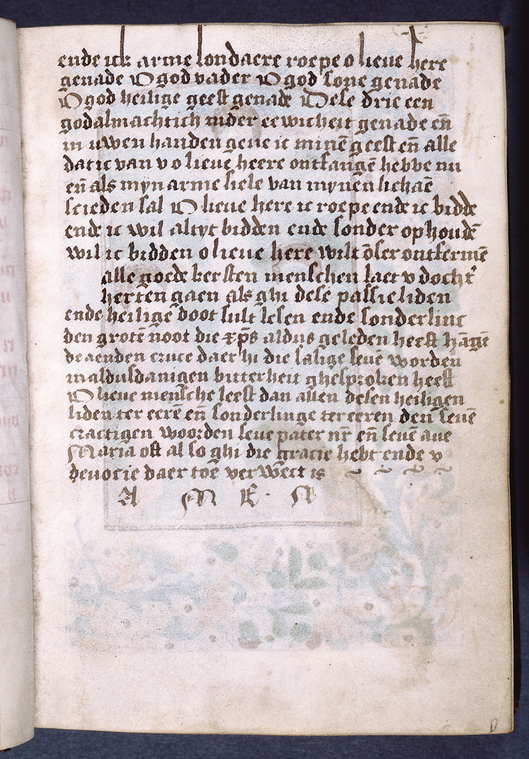 ende ick arme sondaere roepe o lieue here
genade O god vader O god sone genade
O god heilige geest genade Dese drie een
godalmachtich inder eewicheit genade en̄
in uwen handen geue ic minē geest en̄ alle
dat ic van v o lieue heere ontfangē hebbe nu
en̄ als myn arme siele van mynen lichaē
scieden sal O lieue here ic roepe ende ic biddē
ende ic wil altyt bidden ende sonder ophoudē
wil ic bidden o lieue here wilt ōser ontfermē
alle goede kersten menschen laet v docht'
herten gaen als ghi dese passie liden
ende heilige doot sult lesen ende sonderlinc
den grotē noot die xp̄s aldus geleden heeft hāgē
de aenden cruce daer hi die salige seuē worden
in aldusdanigen bitterheit ghesproken heeft
O lieue mensche leest dan allen desen heiligen
liden ter eerē en̄ sonderlinge ter eeren den seuē
crachtigen woorden seue pater nr̄ en̄ seuē aue
Maria oft al so ghi die gracie hebt ende v
deuocie daer toe verwect is
A M E N